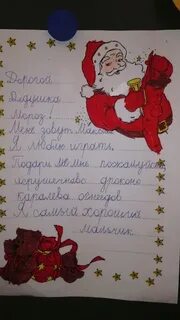 Дорогой
Дедушка
Мороз!
Мене зовут Максим
Я люблю играть.
Подари мне пожалуйста
игрушечнаво дракона
каралева огнегов
Я самый хороший
мальчик